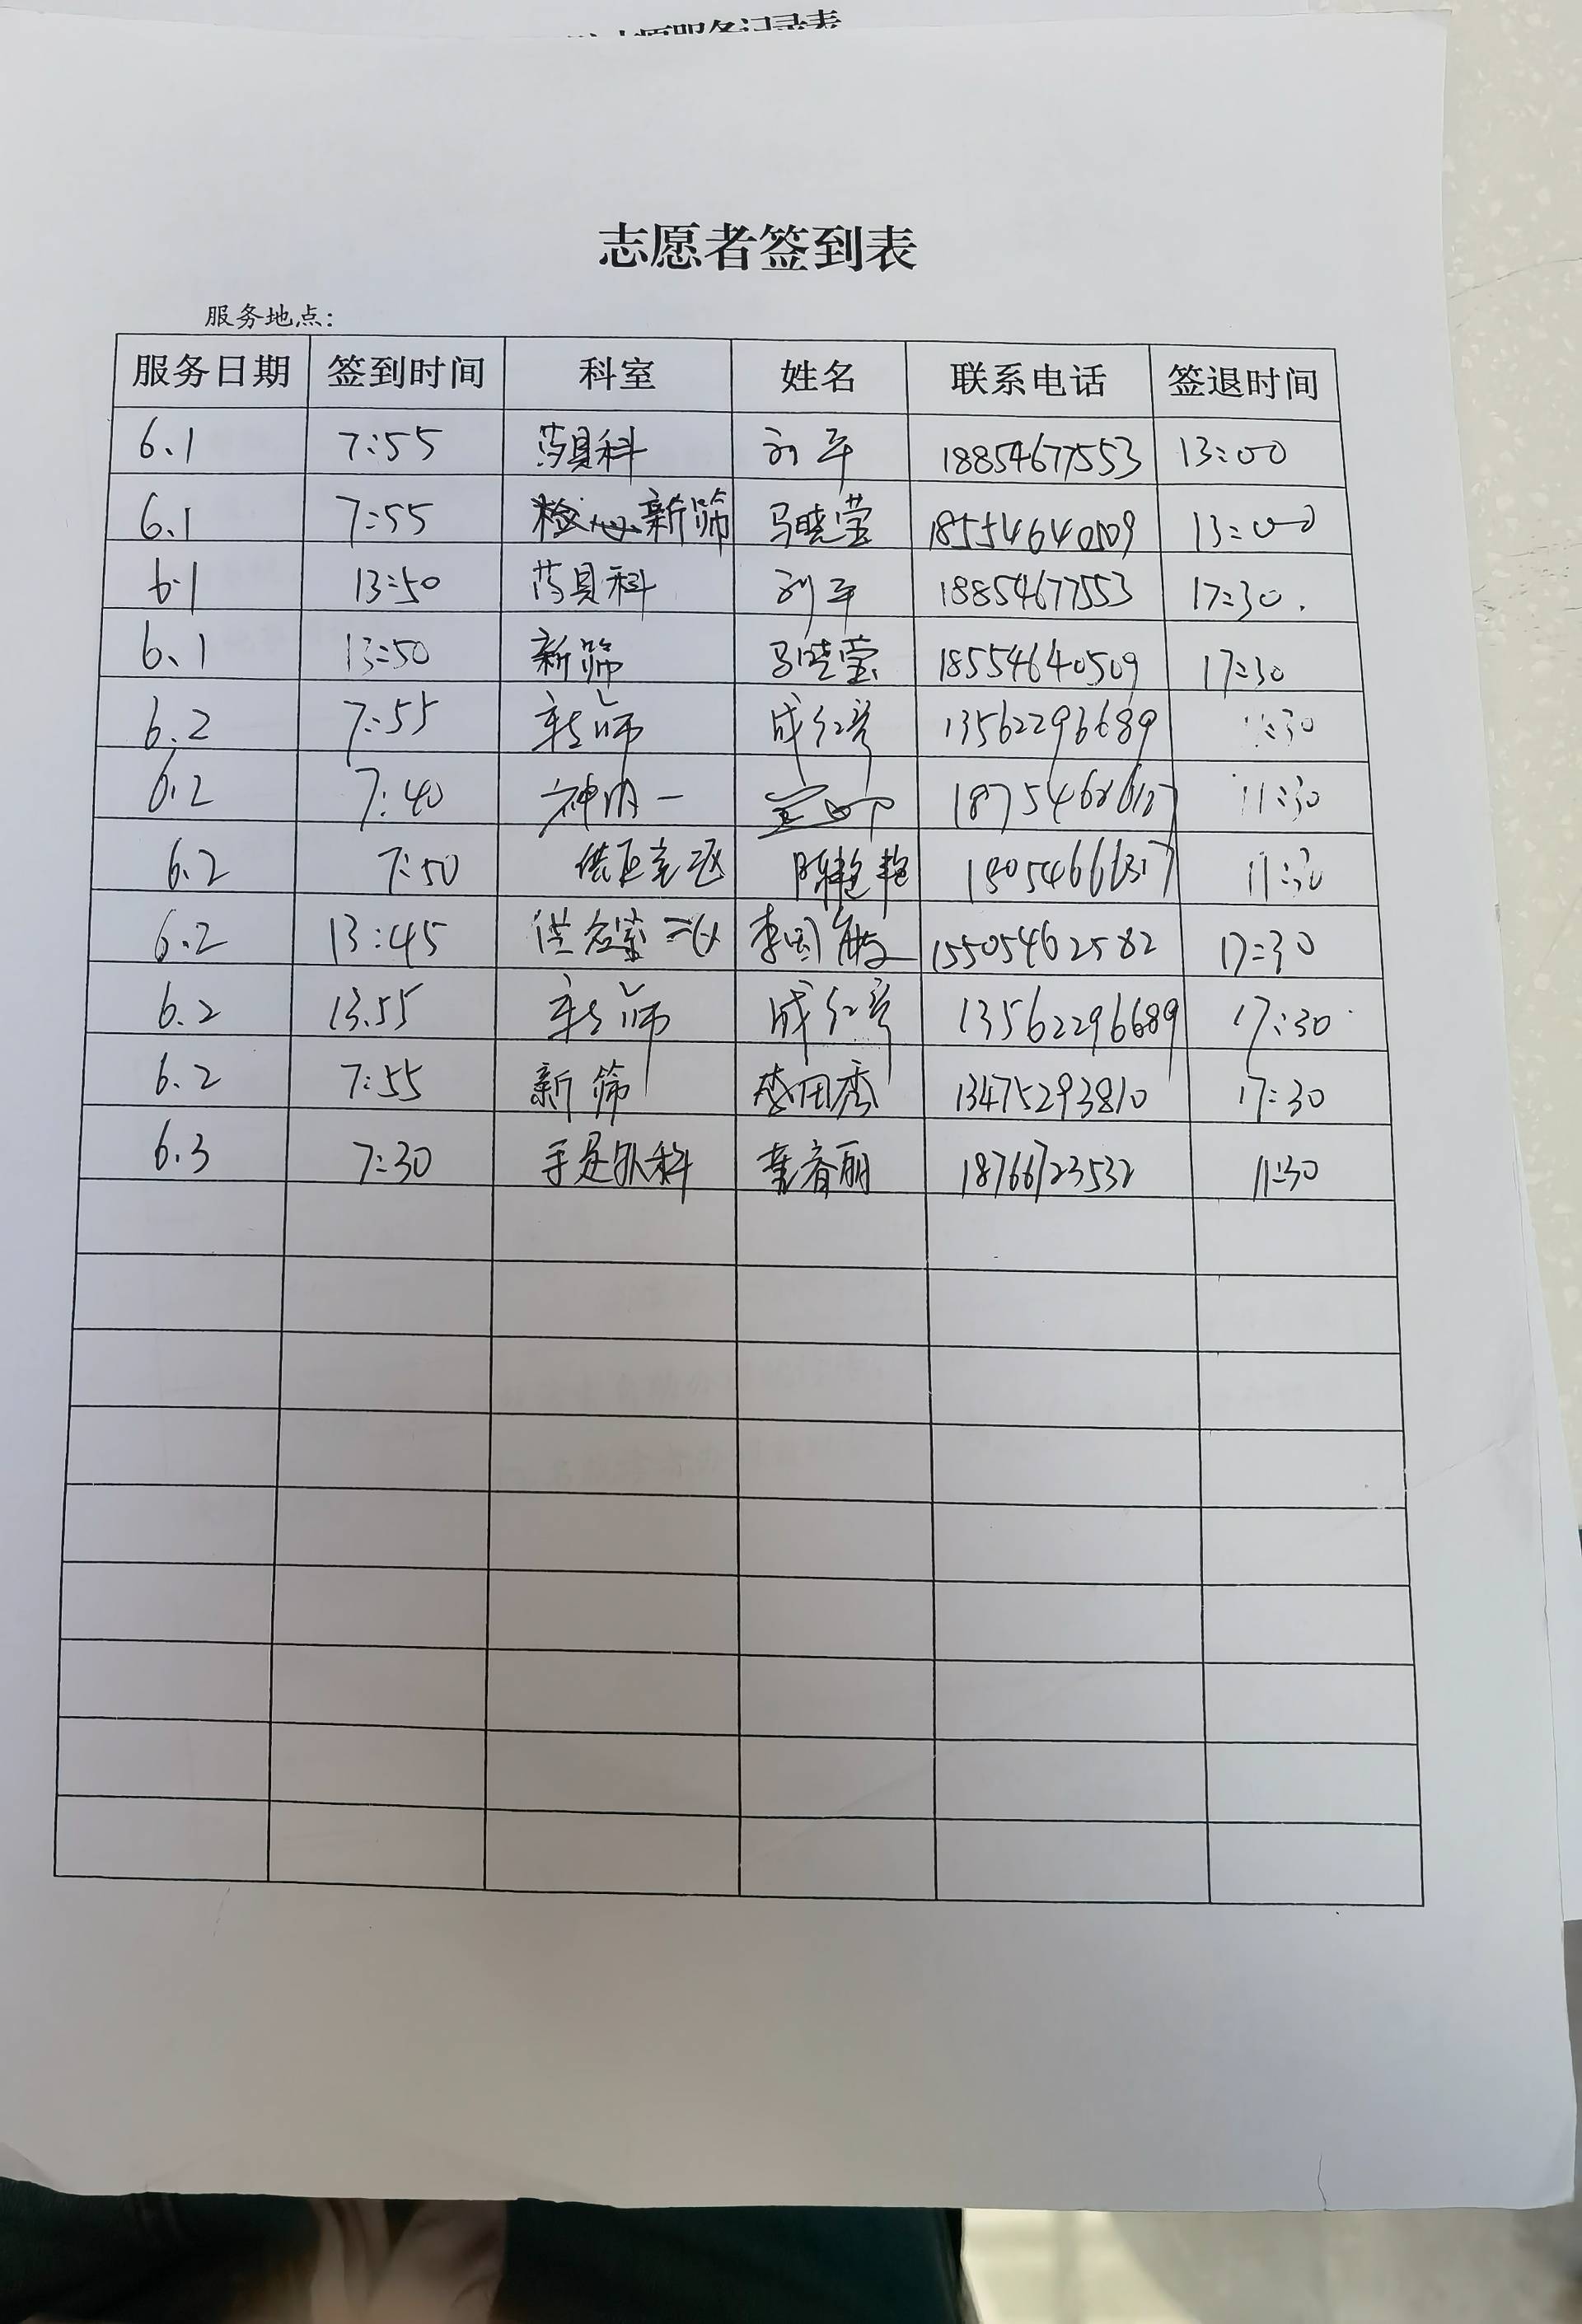 志愿服务记录表
志愿者签到表
服务地点:
服务日期 签到时间 科室 姓名 联系电话 签退时间
6.1 7:55 药具科 刘平 18854677553 13:00
6.1 7:55 新筛 马晓莹 18554640509 13:00
6.1 13:50 药具科 刘平 18854677553 17:30.
6.1 13:50 新筛 马晓莹 18554640509 17:30
6.2 7:55 新筛 成红彦 13562296689 11:30
6.2 7:40 神内一 11:30
6.2 7:50 供应室 陈艳艳 11:30
6.2 13:45 供应室 李国敏 15505462582 17:30
6.2 13.55 新筛 成红彦 13562296689 17:30
6.2 7:55 新筛 秀 13475293810 17:30
6.3 7:30 手足外科 董春丽 18766723532 11:30